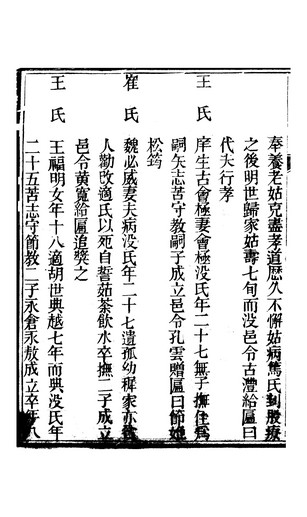 奉養老姑克盡孝道歷久不懈姑病篤氏刲股療
之後明世歸家姑壽七旬而沒邑令古澧給匾曰
代夫行孝
王氏
庠生古會極妻會極沒氏年二十七無子撫侄為
嗣矢志苦守教嗣子成立邑令孔雲贈匾曰節媲
松筠
崔氏
魏必威妻夫病沒氏年二十七遺孤幼穉家亦貧
人勸改適氏以死自誓茹荼飲水卒撫二子成立
邑令黃寬給匾追獎之
王氏
王福明女年十八適胡世典越七年而典沒氏年
二十五苦志守節教二子永倉永敖成立卒年八